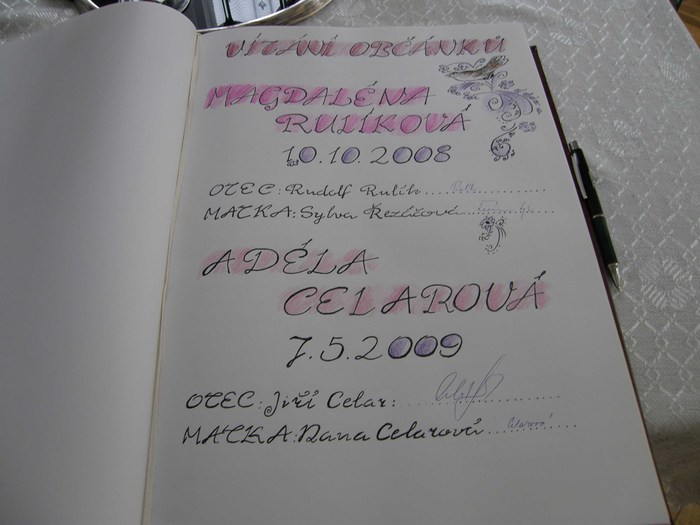 VÍTÁNÍ OBČÁNKŮ
MAGDALÉNA
RULÍKOVÁ
10.10.2008
OTEC: Rudolf Rulík
MATKA: Sylva Řezáčová
ADÉLA
CELAROVÁ
7.5.2009
OTEC: Jiří Celar:
MATKA: Dana Celarová Celarová